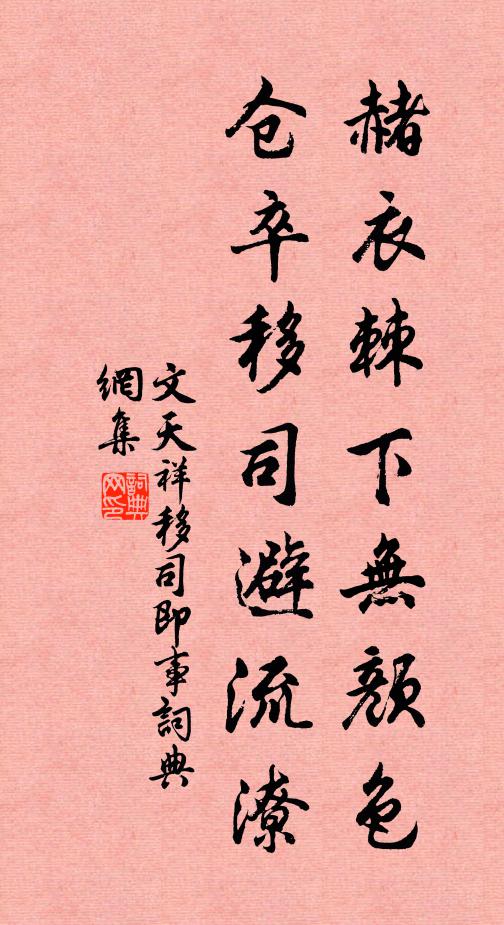 赭衣棘下無顏色
仓卒移司避流潦
文天祥移司即事詞典
網集
詞典
网印